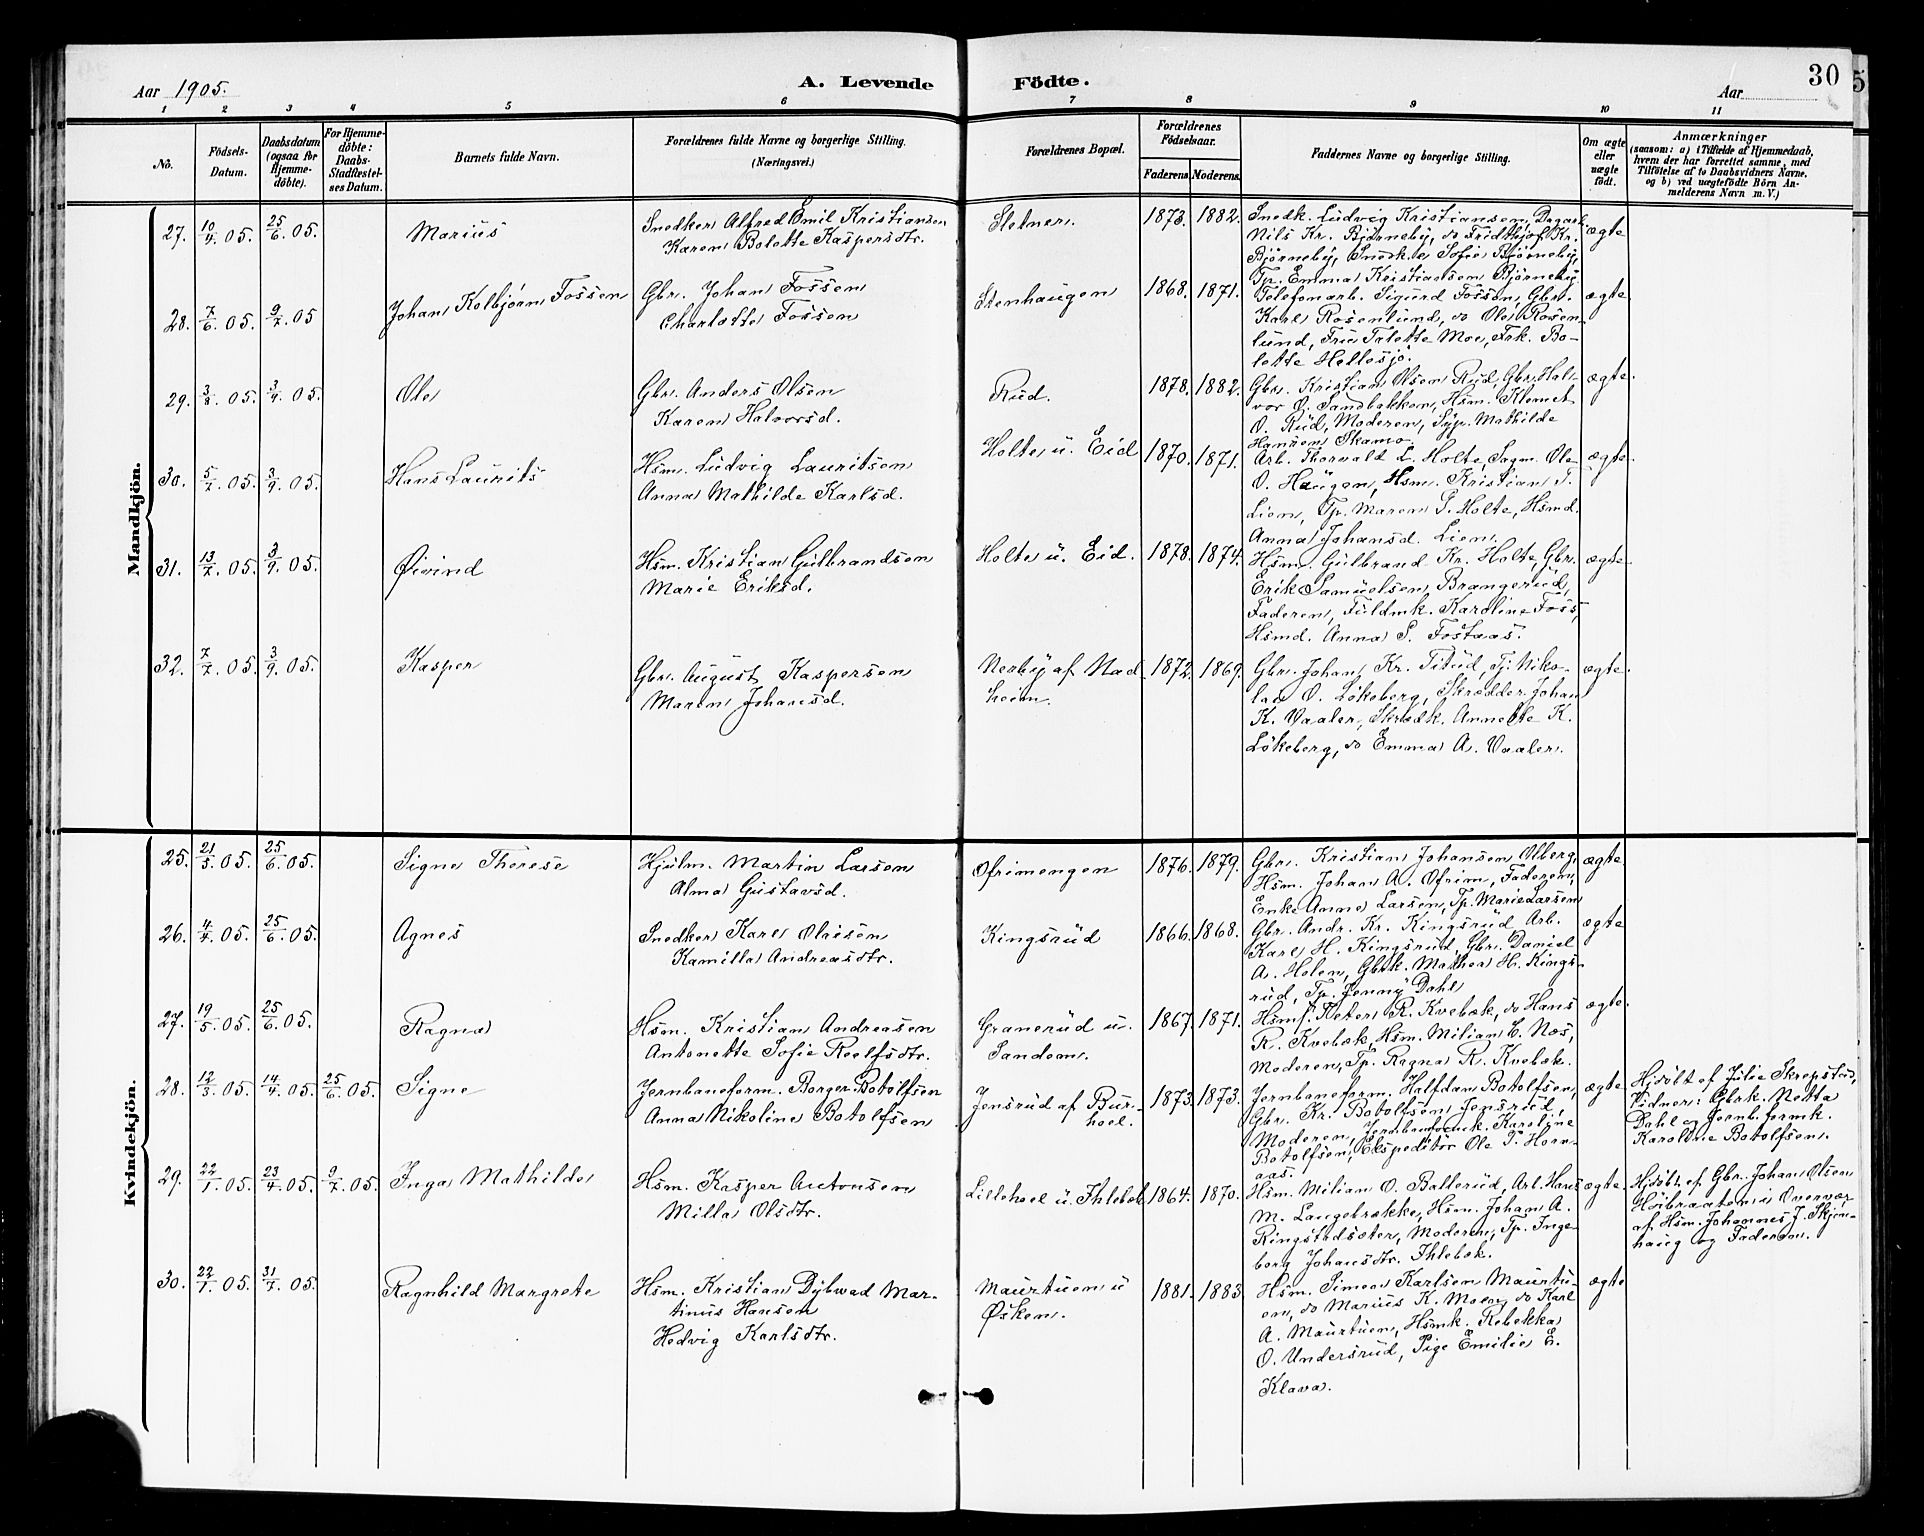 Aar 1905.
A. Levende
Födte.
30
Aar
1 2 3 4 5 6 7 8 9 10 11
No.
Födsels-
Datum.
Daabsdatum
(ogsaa for
Hjemme-
döbte).
For Hjemme-
döbte:
Daabs-
Stadfæstel-
ses Datum.
Barnets fulde Navn.
Forældrenes fulde Navne og borgerlige Stilling.
(Næringsvei.)
Forældrenes Bopæl.
Forældrenes
Födselsaar.
Faderens. Moderens.
Faddernes Navne og borgerlige Stilling.
Om ægte
eller
uægte
födt.
Anmærkninger
(saasom: a) i Tilfælde af Hjemmedaab,
hvem der har forrettet samme, med
Tilföielse af to Daabsvidners Navne,
og b) ved uægtefödte Börn An-
melderens Navn m. V.)
Mandkjön.
27. 10/4 05. 25/6 05. Marius
Snedker Alfred Emil Kristiansen
Karen Bolette Kaspersdtr.
Sletner. 1873. 1882.
Snedk. Ludvig Kristiansen, Dagarb.
Nils Kr. Bjørneby, do Fridthjof Kr.
Bjørneby, Snedk.e Sofie Bjørneby,
Tp. Emma Kristiansen Bjørneby
ægte
28. 7/6 05. 9/7 05 Johan Kolbjørn Fossen
Gbr. Johan Fossen
Charlotte Fossen
Stenhaugen 1868. 1871.
Telefonarb. Sigurd Fossen, Gbr.
Karl Rosenlund, do Ole Rosen-
lund, Frue Talette Moe, Frk. Bo-
lette Hellesjø.
ægte
29. 3/8 05. 3/9 05. Ole
Gbr. Anders Olsen
Karen Halvorsd.
Rud. 1878. 1882.
Gbr. Kristian Olsen Rud, Gbr. Hal-
vor O. Sandbakken, Hsm. Klemet
O. Rud, Moderen, Syp. Mathilde
Hansen Skamo.
ægte.
30. 5/7 05. 3/9 05. Hans Laurits
Hsm. Ludvig Lauritsen
Anna Mathilde Karlsd.
Holte u. Eid 1870. 1871.
Arb. Thorvald L. Holte, Sagm. Ole
O. Haugen, Hsm. Kristian T.
Lien, Tp. Maren P. Holte, Hsmd.
Anna Johansd. Lien.
ægte.
31. 13/7 05. 3/9 05. Øivind
Hsm. Kristian Gulbrandsen
Marie Eriksd.
Holte u. Eid. 1878. 1874.
Hsm. Gulbrand Kr. Holte, Gbr.
Erik Samuelsen, Brangerud,
Faderen, Fuldmk. Karoline Foss,
Hsmd. Anna S. Fostaas.
ægte
32. 7/7 05. 3/9 05. Kasper
Gbr. August Kaspersen
Maren Johansd.
Nerby af Nad
heim. 1872. 1869.
Gbr. Johan Kr. Titud, Tj. Niko-
lai O. Løkeberg, Skrædder Johan
K. Vaaler, Skræk. Annette K.
Løkeberg, do Emma A. Vaaler.
ægte.
Kvindekjön.
25. 21/5 05. 25/6 05. Signe Therese
Hjulm. Martin Larsen
Alma Gustavsd.
Ofrimengen 1876. 1879.
Gbr. Kristian Johansen Olberg,
Hsm. Johan A. Ofrim, Faderen,
Enke Anne Larsen, Tp. Marie Larsen
ægte
26. 4/4 05. 25/6 05. Agnes
Snedker Karl Olaisen
Kamilla Andreasdtr.
Kingsrud 1866. 1868.
Gbr. Andr. Kr. Kingsrud Arb.
Karl H. Kingsrud, Gbr. Daniel
A. Holen, Gbrk. Mathea H. Kings-
rud, Tp. Jenny Dahl
ægte
27. 19/5 05. 25/6 05. Ragna
Hsm. Kristian Andreasen
Antonette Sofie Roelfsdtr.
Granerud u.
Sandem. 1867. 1871.
Hsmf. Peter R. Kvebæk, do Hans
R. Kvebæk, Hsm. Milian C. Næs,
Moderen, Tp. Ragna R. Kvebæk.
ægte.
28. 12/3 05. 14/4 05. 25/6 05. Signe
Jernbaneform. Borger Botolfsen
Anna Nikoline Botolfsen
Jensrud af Bur-
hoel. 1873. 1873.
Jernbaneform. Halfdan Botolfsen,
Gbr. Kr. Botolfsen Jensrud,
Moderen, Jernbaneformk. Karoline
Botolfsen, Ekspeditør Ole T. Horn-
aas.
ægte
Hjdøbt af Julie Skrepstad,
Vidner: Gbrk. Netta
Dahl og Jernb.formk.
Karoline Botolfsen.
29. 22/1 05. 23/4 05. 9/7 05. Inga Mathilde
Hsm. Kasper Antonsen
Milla Olsdtr.
Lillehoel u. Ihlebæk 1864. 1870.
Hsm. Milian O. Ballerud, Arb. Hans
M. Langebrække, Hsm. Johan A.
Ringstadsæter, Moderen, Tp. Inge-
borg Johansdtr. Ihlebæk.
ægte.
Hjdøbt af Gbr. Johan Olsen
Høibraaten i Overvær
af Hsm. Johannes J. Skjøn-
haug og Faderen.
30. 22/1 05. 31/7 05. Ragnhild Margrete
Hsm. Kristian Dybwad Mar-
tinus Hansen
Hedvig Karlsdtr.
Maurtuen u
Øsken. 1881. 1883
Hsm. Simon Karlsen Maurtu-
en, do Marius K. Moen, do Karl
A. Maurtuen, Hsmk. Rebekka
O. Undersrud, Pige Emilie E.
Klava.
ægte